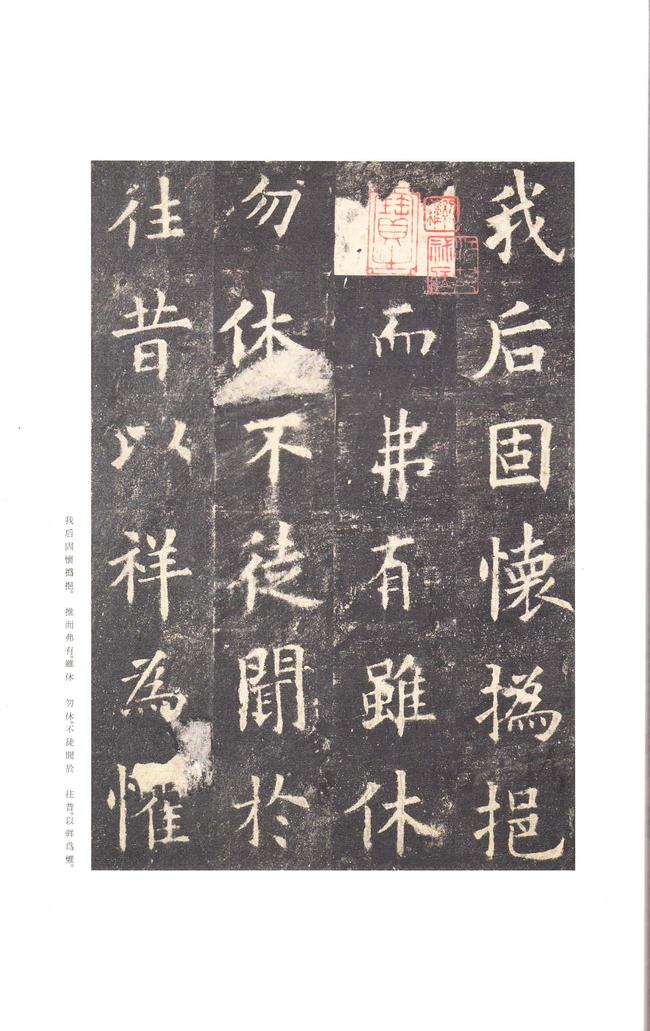 我后固懷撝挹
而弗有雖休
勿休不徒聞於
往昔以祥為懼
我后固懷撝挹。 推而弗有。雖休 勿休。不徒聞於 往昔。以祥爲懼。